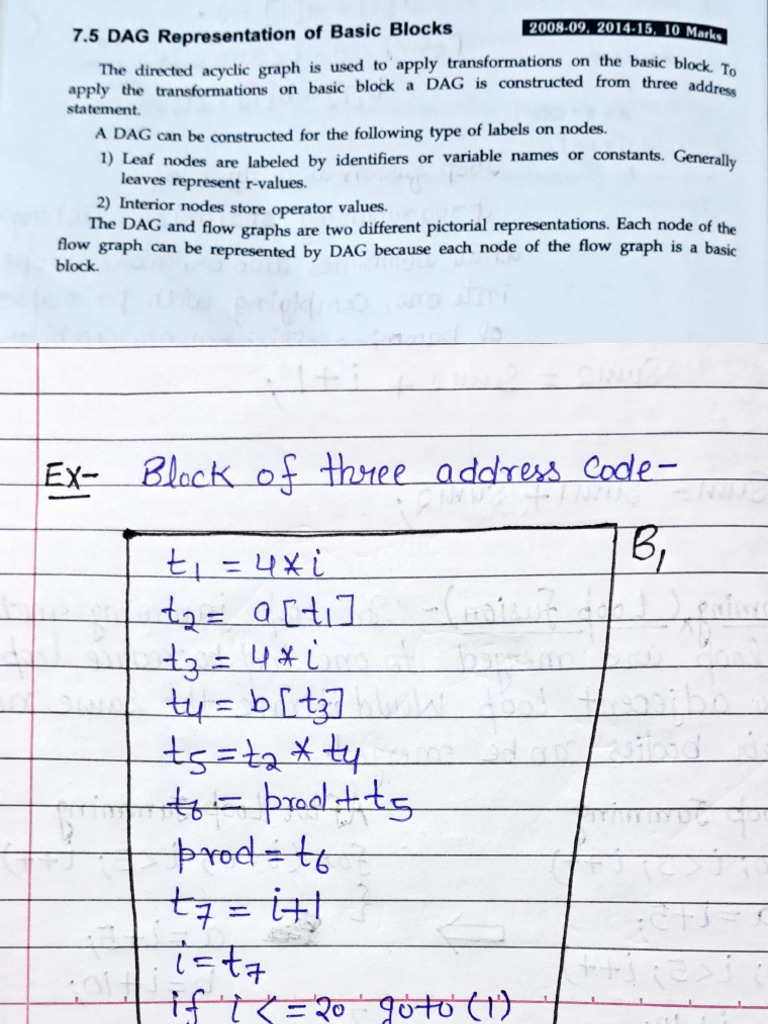 7.5 DAG Representation of Basic Blocks
2008-09, 2014-15, 10 Marks
The directed acyclic graph is used to apply transformations on the basic block. To
apply the transformations on basic block a DAG is constructed from three address
statement.
A DAG can be constructed for the following type of labels on nodes.
1) Leaf nodes are labeled by identifiers or variable names or constants. Generally
leaves represent r-values.
2) Interior nodes store operator values.
The DAG and flow graphs are two different pictorial representations. Each node of the
flow graph can be represented by DAG because each node of the flow graph is a basic
block.
Ex- Block of three address Code-
B1
t1 = 4*i
t2 = a[t1]
t3 = 4*i
t4 = b[t3]
t5 = t2 * t4
t6 = prod + t5
prod = t6
t7 = i+1
i = t7
if i <= 20 goto (1)